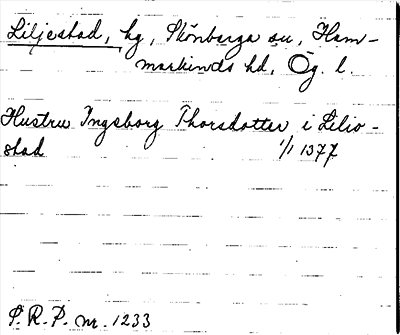 Liljestad, hg, Skönberga sn, Ham-
markinds hd, Ög. l.
Hustru Ingeborg Thorsdotter i Lilio-
stad 1/1 1377
S. R. P. nr. 1233